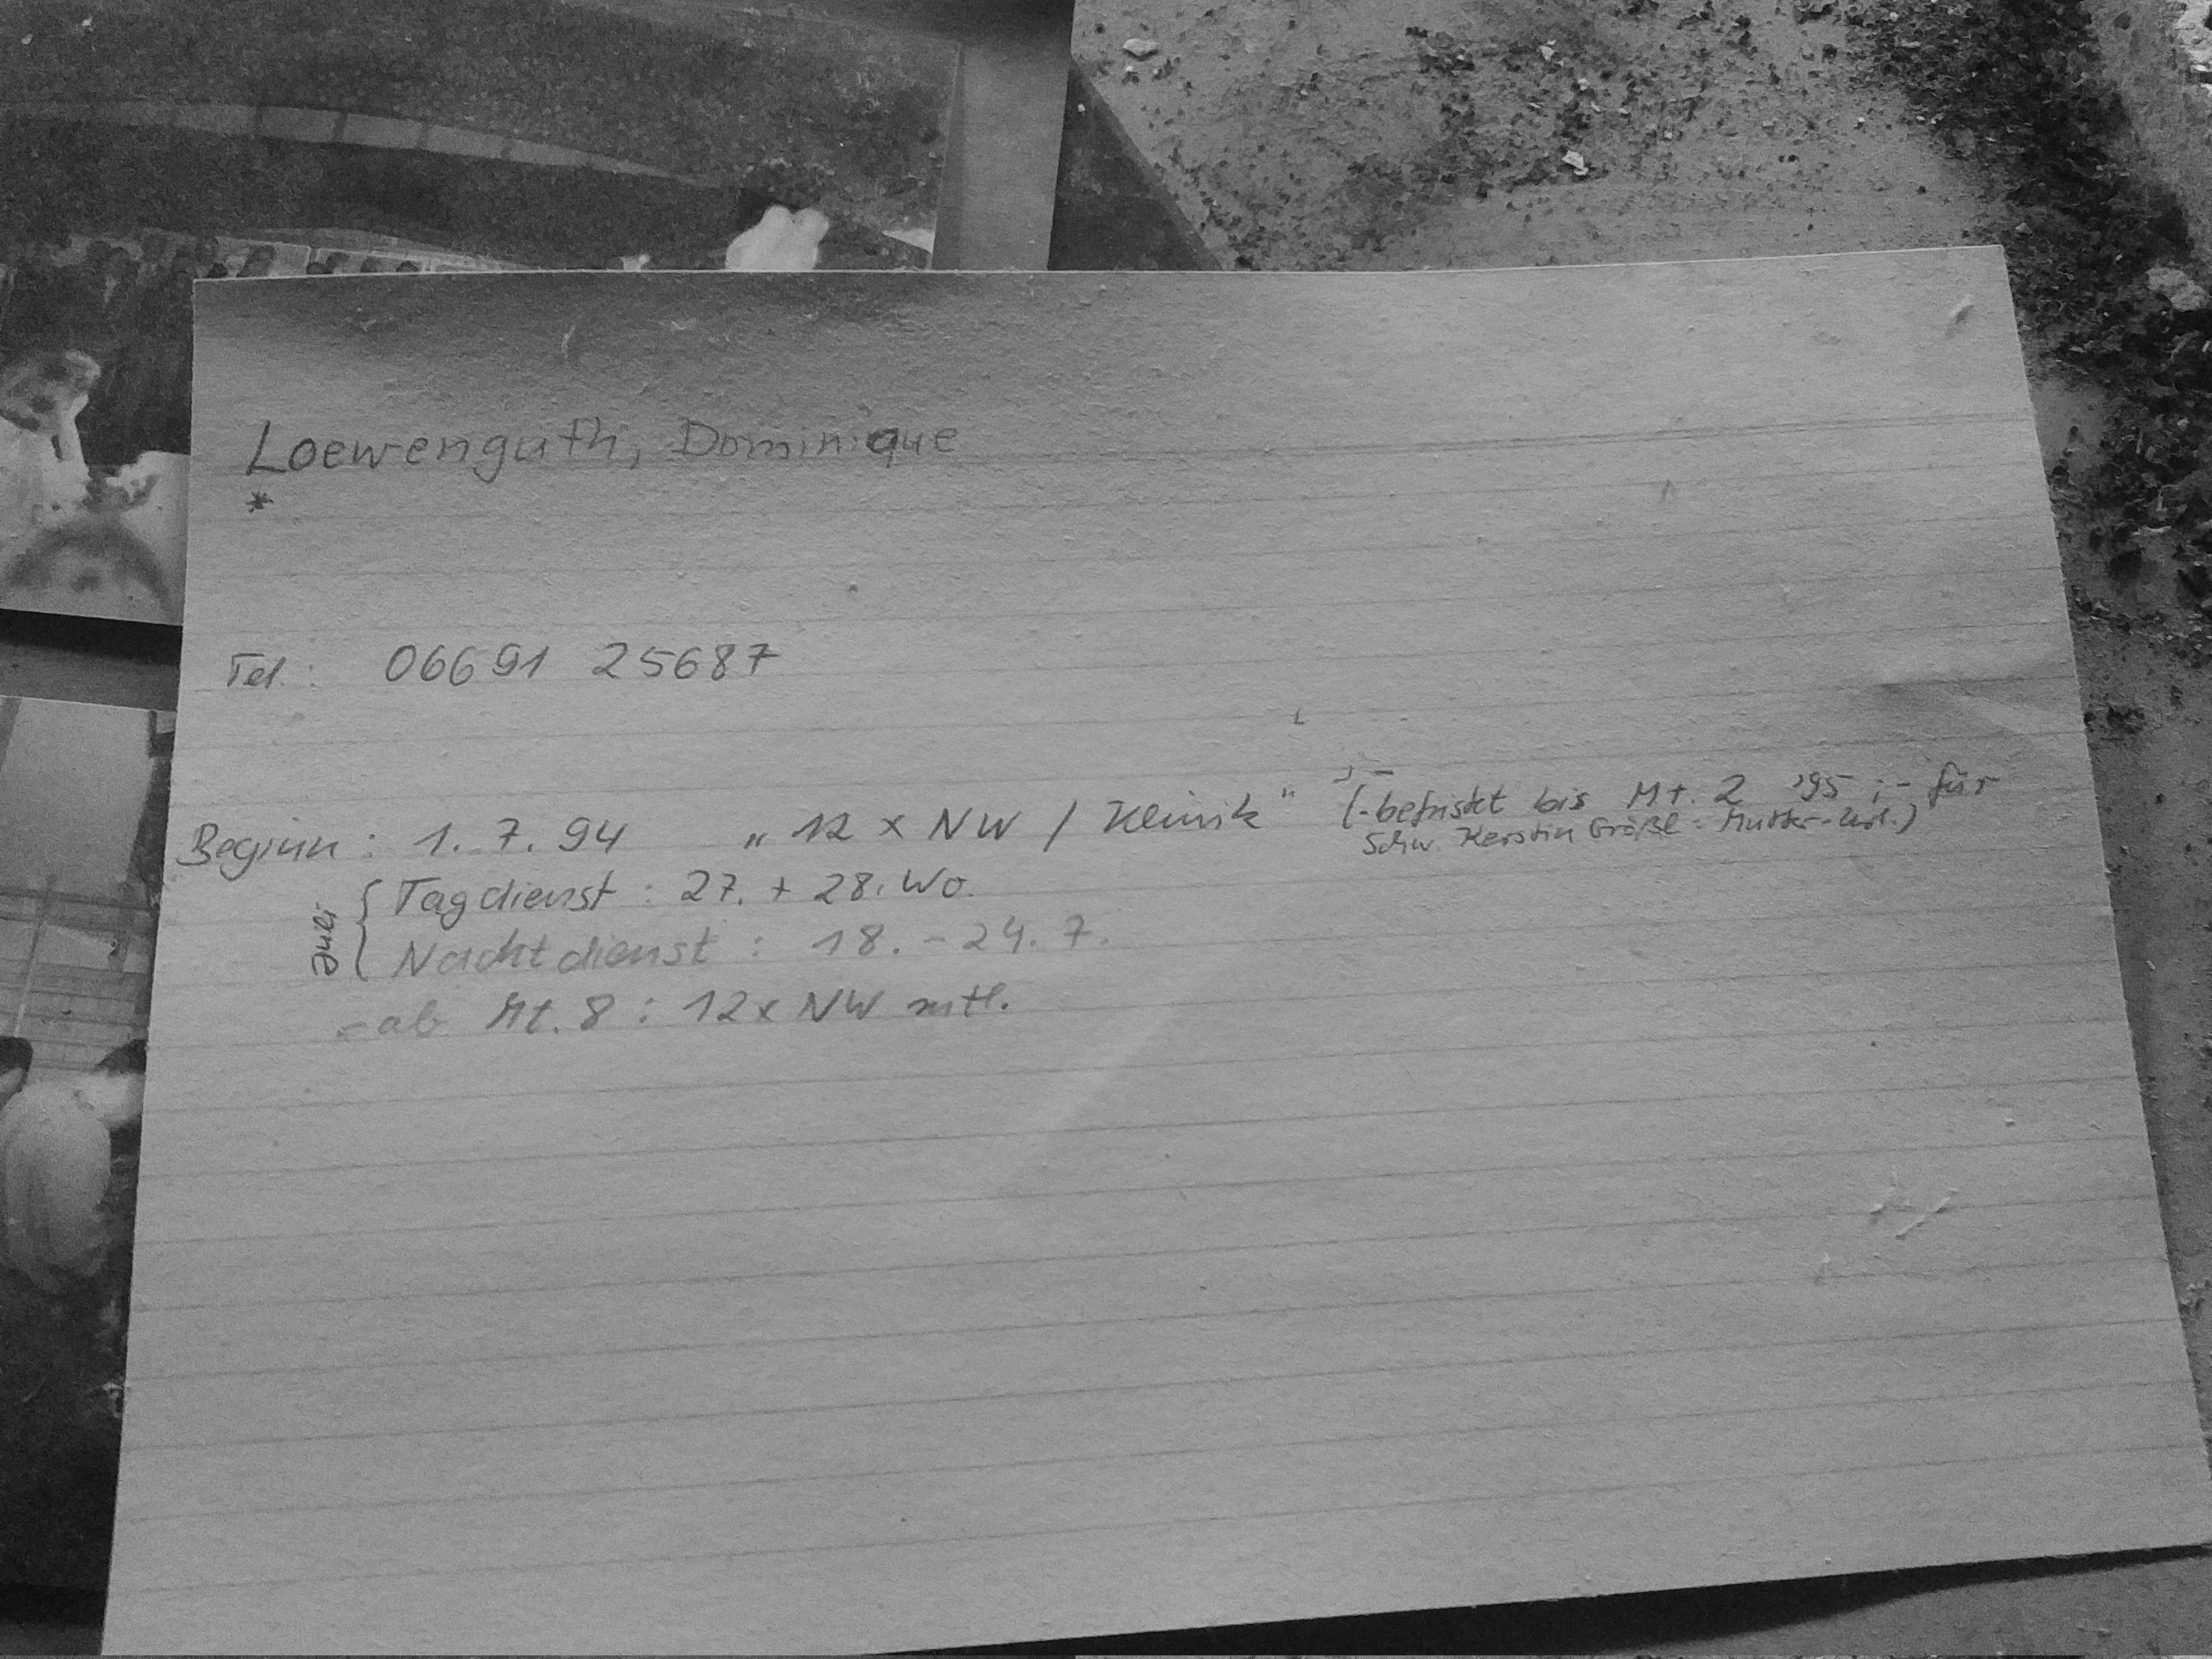 Loewenguth, Dominique
*
Tel.: 06691 25687
Beginn: 1. 7. 94 „12 x NW / Klinik" (-befristet bis Mt. 2 '95 ;- für
Schw. Kerstin Größl - Mutter-Url.)
Juli { Tagdienst : 27. + 28. Wo.
Nachtdienst : 18. - 24. 7.
- ab Mt. 8 : 12x NW mtl.